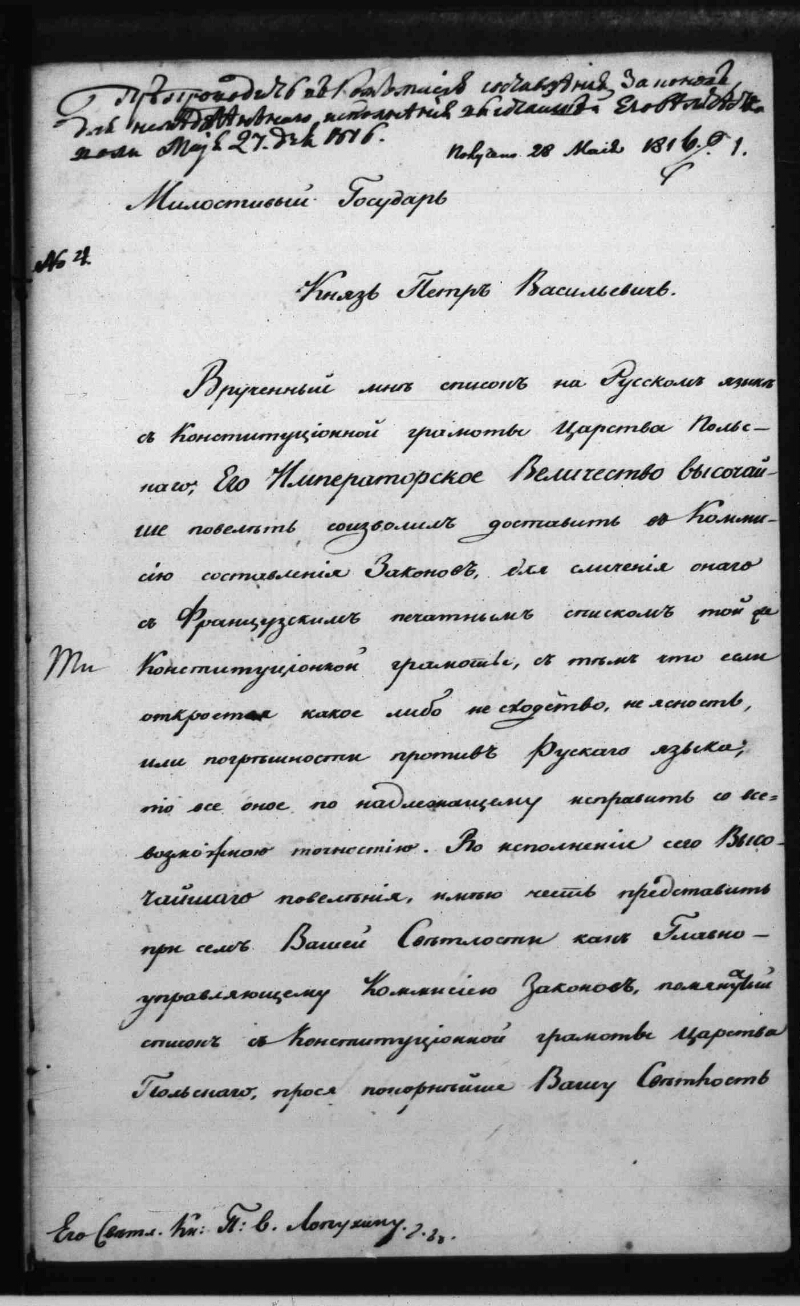 Препроводить въ Коммисiю составленiя Законовъ
для немедленнаго исполненiя высочайшей Его Величества
воли Маiя 27. дня 1816.
Получено 28 Маiя 1816. 1.
Милостивый Государь
№ 4.
Князь Петръ Васильевичъ.
Врученный мнѣ списокъ на Русскомъ языкѣ
съ Конституцiонной грамоты Царства Поль-
скаго, Его Императорское Величество высочай-
ше повелѣть соизволилъ доставить въ Комми-
сiю составленiя Законовъ, для сличенiя онаго
съ Французскимъ печатнымъ спискомъ той же
Конституцiонной грамоты, съ тѣмъ что если
откроется какое либо не сходство, не ясность,
или погрѣшности противъ Рускаго языка,
то все оное по надлежащему исправить со все-
возможною точностiю. Во исполненiи сего Высо-
чайшаго повелѣнiя, имѣю честь представить
при семъ Вашей Свѣтлости какъ Главно-
управляющему Коммисiею Законовъ, помянутый
списокъ съ Конституцiонной грамоты Царства
Польскаго, прося покорнѣйше Вашу Свѣтлость
Его Свѣтл. Кн: П: В. Лопухину.